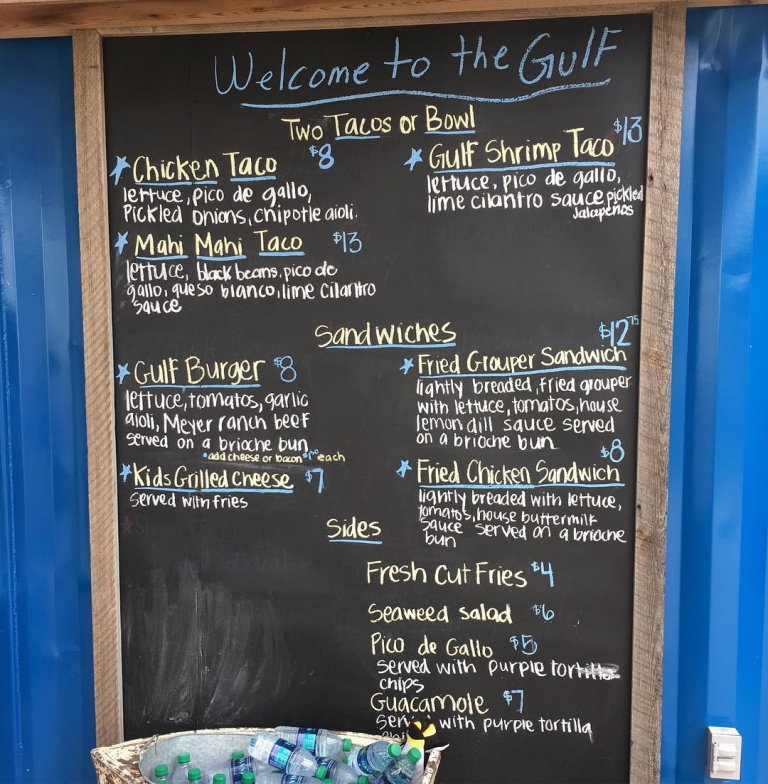 Welcome to the Gulf
Two Tacos or Bowl
Chicken Taco $8
lettuce, pico de gallo,
Pickled onions, chipotle aioli.
Mahi Mahi Taco $13
lettuce, black beans, pico de
gallo, queso blanco, lime cilantro
sauce
Gulf Shrimp Taco $13
lettuce, pico de gallo,
lime cilantro sauce pickled
Jalapeños
Sandwiches
Gulf Burger $8
lettuce, tomatos, garlic
aioli, Meyer ranch beef
served on a brioche bun
*add cheese or bacon each
Kids Grilled Cheese $7
served with fries
$12.75
Fried Grouper Sandwich
lightly breaded, fried grouper
with lettuce, tomatos, house
lemon dill sauce served
on a brioche bun
$8
Fried Chicken Sandwich
lightly breaded with lettuce,
tomatos, house buttermilk
sauce served on a brioche
bun
Sides
Fresh Cut Fries $4
Seaweed Salad $6
Pico de Gallo $5
served with purple tortilla
chips
Guacamole $7
with purple tortilla